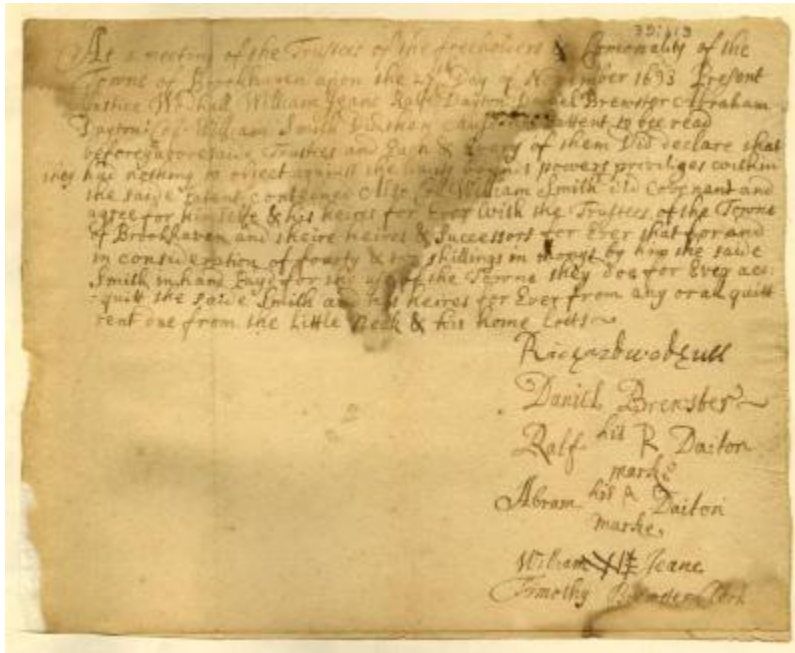 39:113
At a meeting of the Trustees of the freeholders & Comonality of the
Towne of Brookhaven upon the 27th Day of November 1693 Present
Justice Wodhull William Jeane Ralf Daiton Daniel Brewster Abraham
Dayton Col William Smith patent to bee read
before trustees and Each & Every of them did declare that
they had nothing to object against the powers priviliges within
the saide patent contained Also Col William Smith did Covenant and
agree for himselfe & his heires for Ever with the Trustees of the Towne
of Brookhaven and theire heires & Successors for Ever that for and
in consideration of fourty & shillings in monys by him the saide
Smith in hand payd for the use of the Towne they doe for Ever acc:
:quitt the saide Smith and his heires for Ever from any or all quitt
rent due from the Little Neck & his home Lotts
Richard wodhull
Daniell Brewster
Ralf his R Daiton
marke
Abram his A Daiton
marke
William Jeane
Timothy Brewster Clerk